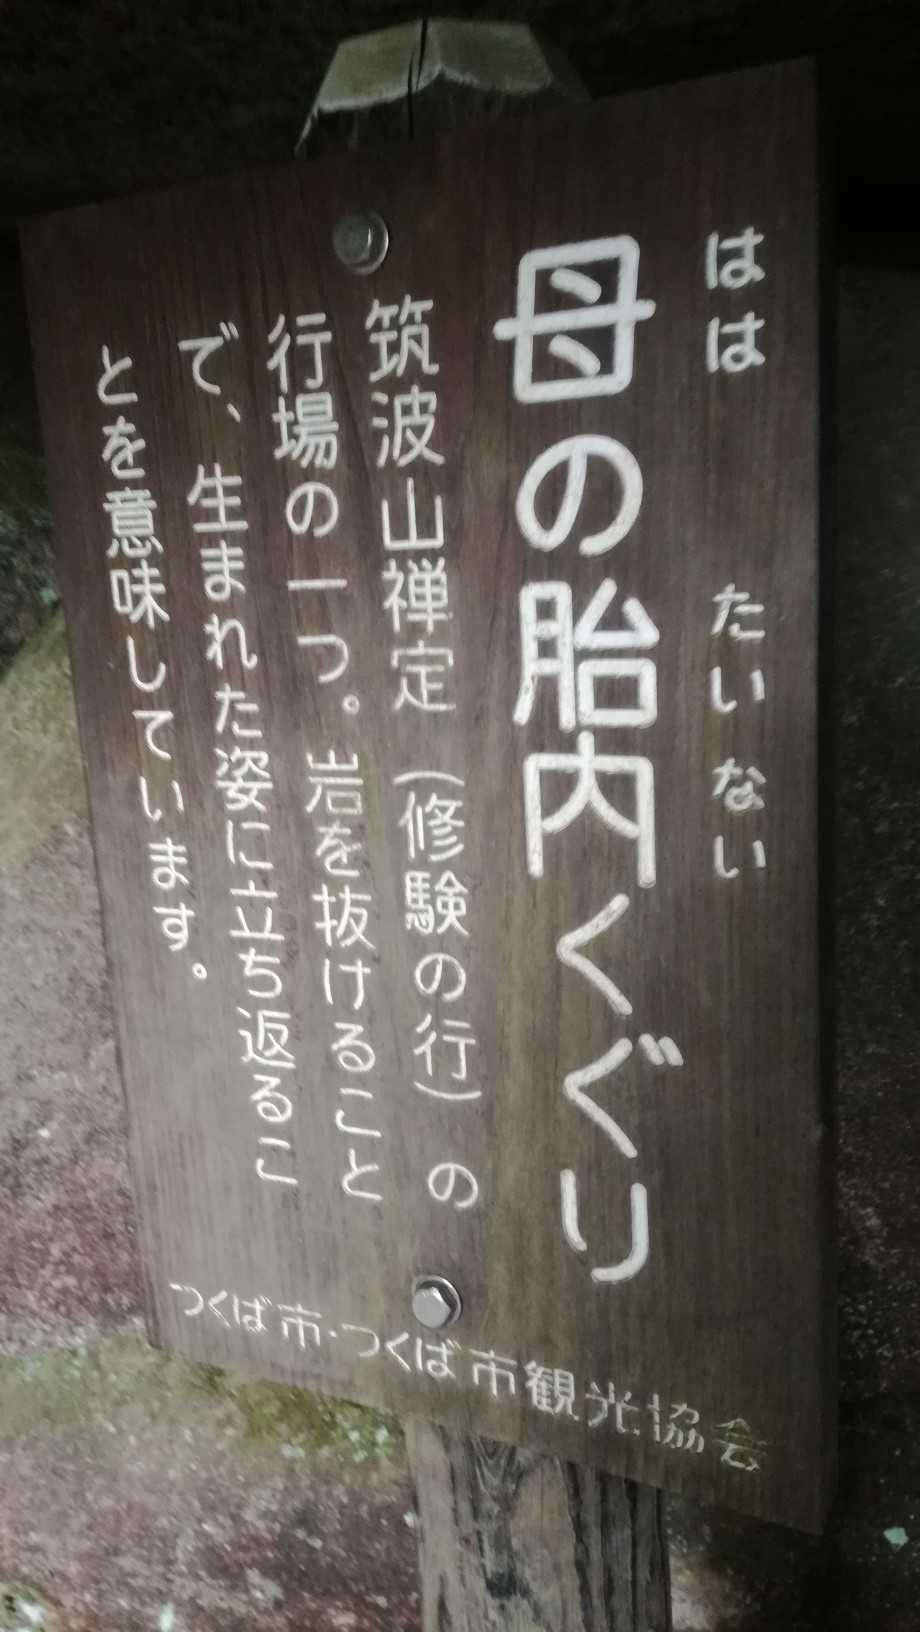 はは たいない
母の胎内くぐり
筑波山禅定(修験の行)の
行場の一つ。岩を抜けること
で、生まれた姿に立ち返るこ
とを意味しています。
つくば市・つくば市観光協会